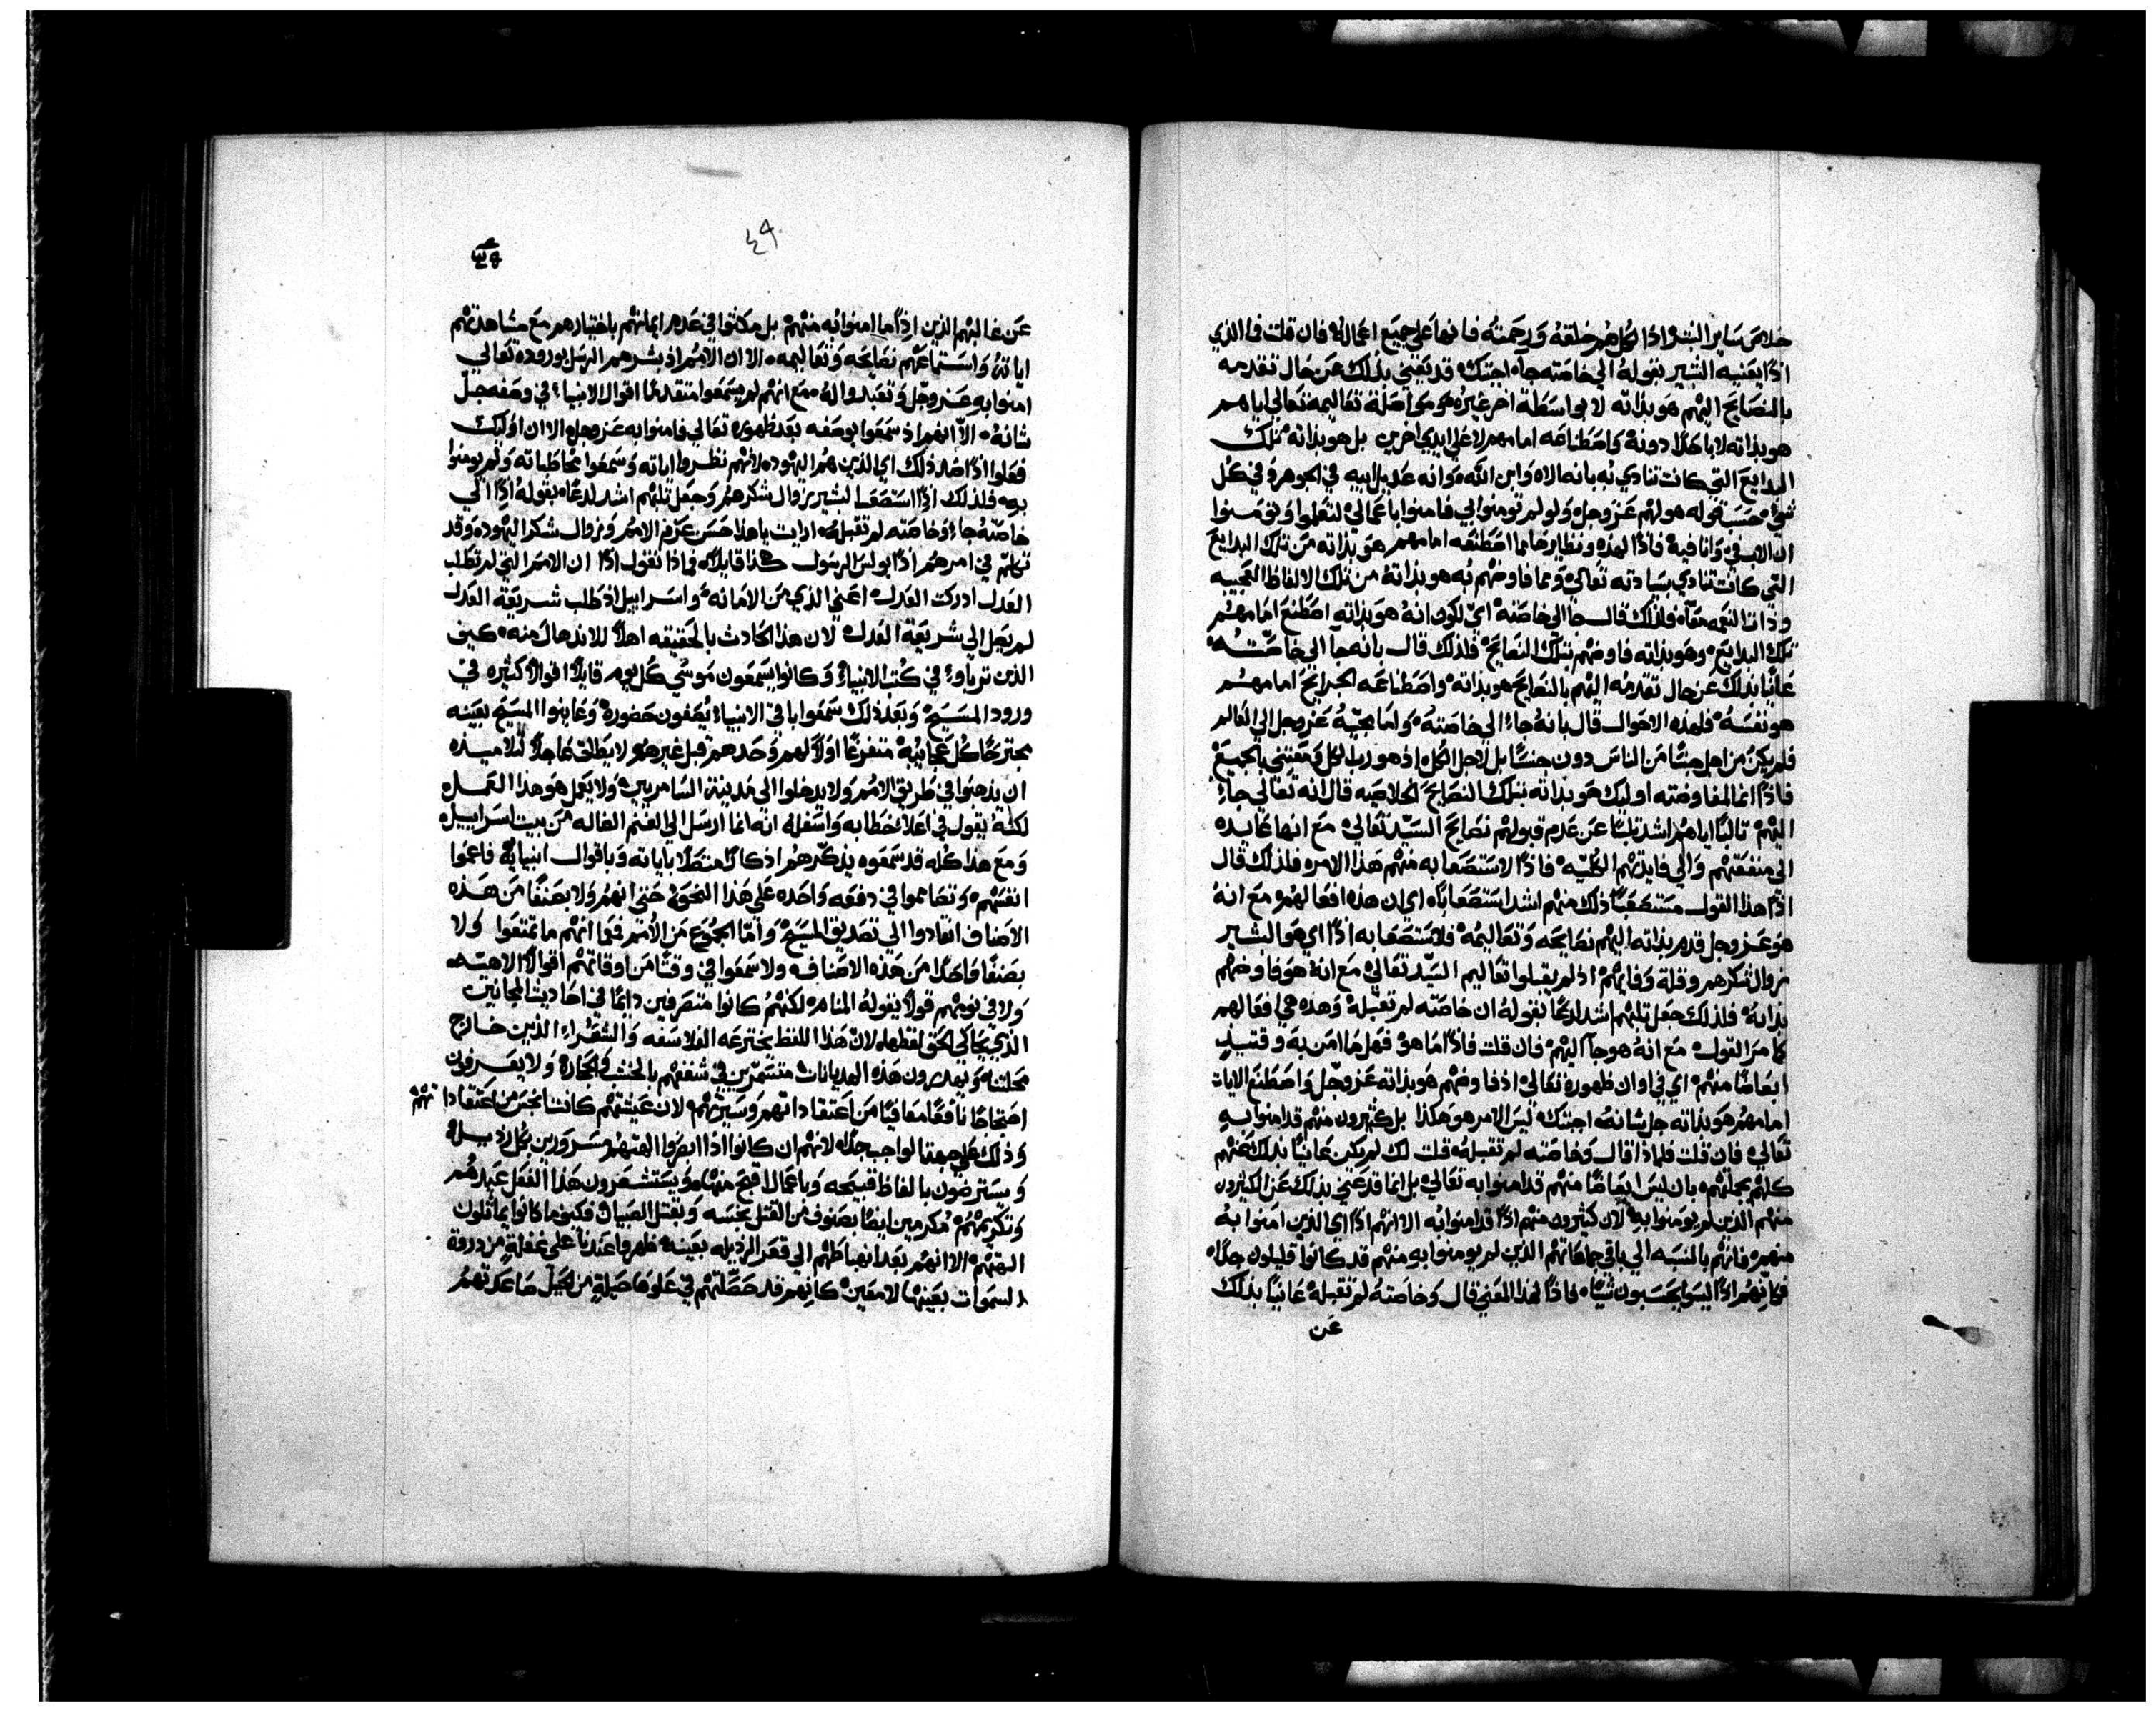 خلاص ساير البشر اذا الكل هم خلقته ورحمته فانها على جميع اعماله فان قلت فما الذي
اذًا يعنيه البشير بقوله الي خاصته جاء اجبتك قد يعني بذلك عن حال تقدمه
بالنصايح اليهم هو بذاته لا بواسطة اخر غيره هو مواصلة تعاليمه تعالي اياهم
هو بذاته لا باحدًا دونه واصطناعه امامهم لا علي ايدي اخرين بل هو بذاته تلك
البدايع التي كانت تنادي به بانه الاه وابن الله وانه عديل ابيه في الجوهر وفي كل
شي حسب قوله هو لهم عز وجل ولو لم تومنوا بي فامنوا باعمالي لتعلموا وتومنوا
ان الاب في وانا فيه فاذًا لهذه ونظايرها مما اصطنعه امامهم هو بذاته من تلك البدايع
التي كانت تنادي بسيادته تعالي ومما فاوضهم به هو بذاته من تلك الالفاظ العجيبه
وذات النعمه معًا فلذلك قال جا الي خاصته اي لكون انه هو بذاته اصطنع امامهم
تلك البدايع وهو بذاته فاوضهم بتلك النصايح فلذلك قال بانه جا الي خاصته
عانيًا بذلك عن حال تقدمه اليهم بالنصايح هو بذاته واصطناعه الجرايح امامهم
هو نفسه فلهذه الاحوال قال بانه جاء الي خاصته واما مجيه عز وجل الي العالم
فلم يكن من اجل جنسًا من الناس دون جنسًا بل لاجل الكل اذ هو رب الكل ومعتني بالجميع
فاذًا انما لمفاوضته اوليك هو بذاته بتلك النصايح الخلاصيه قال انه تعالي جاء
اليهم ثالبًا اياهم اشد ثلبًا عن عدم قبولهم نصايح السيد تعالي مع انها عايده
الي منفعتهم والي فايدتهم الكليه فاذًا لاستصعابه منهم هذا الامر فلذلك قال
اذًا هذا القول مستصعبًا ذلك منهم اشد استصعابًا اي ان هذه افعالهم مع انه
هو عز وجل قدم بذاته اليهم نصايحه وتعاليمه فلاستصعابه اذًا اي هو البشير
زوال شكرهم وقلة وفايهم اذ لم يقبلوا تعاليم السيد تعالي مع انه هو فاوضهم
بذاته فلذلك جعل ثلبهم اشد لدغًا بقوله ان خاصته لم تقبله وهذه هي افعالهم
كما مر القول مع انه هو جا اليهم فان قلت فاذًا ما هو فهل ما امن به وقتيذٍ
ايضًا منهم اي في اوان ظهوره تعالي اذ فاوضهم هو بذاته عز وجل واصطنع الايات
امامهم هو بذاته جل شانه اجبتك ليس الامر هو هكذا بل كثيرون منهم قد امنوا به
تعالي فان قلت فلماذا قال وخاصته لم تقبله قلت لك لم يكن عانيًا بذلك عنهم
كلهم بجملتهم بان ليس منهم قد امنوا به تعالي بل انما قد عني بذلك عن الكثيرون
منهم الذين لم يومنوا به لان كثيرون منهم اذًا قد امنوا به الا انهم اذًا اي الذين امنوا به
منهم فانهم بالنسبه الي باقي جماعاتهم الذين لم يومنوا به منهم قد كانوا قليلون جدًا
فكانهم اذًا ليسوا يحسبون شيًا فاذًا لهذا المعني قال وخاصته لم تقبله عانيًا بذلك
عن
٤٩
عن غالبهم الذين اذًا ما امنوا به منهم بل مكثوا في عدم ايمانهم باختيارهم مع مشاهدتهم
اياته واستماعهم نصايحه وتعاليمه الا ان الامم اذ بشرهم الرسل بوروده تعالي
امنوا به عز وجل وتعبدوا له مع انهم لم يسمعوا متقدمًا اقوال الانبياء في وصفه جل
شانه الا انهم اذ سمعوا بوصفه بعد ظهوره تعالي فامنوا به عز وجل الا ان اوليك
فعلوا اذًا ضد ذلك اي الذين هم اليهود لانهم نظروا اياته وسمعوا مخاطباته ولم يومنوا
به فلذلك اذًا استصعب البشير زوال شكرهم وجعل ثلبهم اشد لدغًا بقوله اذًا الي
خاصته جاء وخاصته لم تقبله ارايت يا هذا حسن عزم الامم وزوال شكر اليهود وقد
تكلم في امرهم اذًا بولس الرسول هكذا قايلاً فماذا نقول اذًا ان الامم التي لم تطلب
العدل ادركت العدل اعني الذي من الامانه واسراييل اذ طلب شريعة العدل
لم يصل الي شريعة العدل لان هذا الحادث بالحقيقه اهلاً للاندهال منه كيف
الذين تربوا في كتب الانبياء وكانوا يسمعون موسي كل يوم قايلاً اقوالاً كثيره في
ورود المسيح وبعد ذلك سمعوا باقي الانبياء يصفون حضوره وعاينوا المسيح بعينه
مجترحًا كل عجايبه متفرغًا اولاً لهم وحدهم قبل غيرهم لا يطلق عاجلاً لتلاميذه
ان يذهبوا في طريق الامم ولا يدخلوا الي مدينة السامريين ولا يعمل هو هذا العمل
لكنه يقول في اعلا خطابه واسفله انه انما ارسل الي الغنم الضاله من بيت اسراييل
ومع هذا كله قد سمعوه يذكرهم اذكارًا متصلاً باياته وباقوال انبيايه فاعموا
انفسهم وتصامموا في دفعه واحده علي هذا النحو حتي انهم ولا بصنفًا من هذه
الاصناف انقادوا الي تصديق المسيح واما الجموع من الامم فيما انهم ما تمتعوا ولا
بصنفًا واحدًا من هذه الاصناف ولا سمعوا في وقتًا من اوقاتهم اقوالاً الاهيه
ولا في نومهم قولاً يقوله المنام لكنهم كانوا متصرفين دايمًا في احاديث المجانين
الذي يحاكي الحق لفظها لان هذا اللفظ يخترعه الفلاسفه والشعراء الذين خارج
محلتنا ويهدرون هذه الهديانات متسمرين في شغفهم بالخشب والحجاره ولا يعرفون
احتجاجًا نافعًا معافيًا من اعتقاداتهم وسيرتهم لان عيشتهم كانت انجس من اعتقاداتهم
وذلك علي جهة الواجب جدًا لانهم ان كانوا اذًا ابصروا الهتهم مسرورين بكل رذيله
ويسترضون بالفاظ قبيحه وباعمال اقبح منها ويستشعرون هذا الفعل عيد لهم
وتكريمهم مكرمين ايضًا بصنوف من القتل نجسه وبقتل الصبيان فكيف ما كانوا يماثلون
الهتهم الا انهم بعد انهباطهم الي قعر الرذيله بعينه ظهروا عندنا علي غفلةٍ من ذروة
السموات بعينها لامعين كانهم قد حطتهم في علوها حيلةٍ من الحيل صاعدتهم